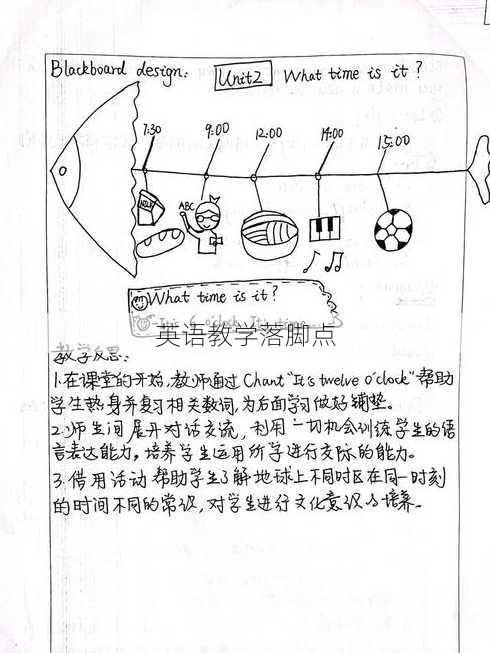 Blackboard design: Unit2 What time is it?
7:30 9:00 12:00 14:00 15:00
MILK
ABC
What time is it?
It's 6 o'clock. It's time
英语教学落脚点
教学反思:
1.在课堂的开始,教师通过Chant"It's twelve o'clock"帮助
学生热身并复习相关数词,为后面学习做好铺垫。
2.师生间展开对话交流,利用一切机会训练学生的语
言表达能力,培养学生运用所学进行交际的能力。
3.借用活动帮助学生了解地球上不同时区在同一时刻
的时间不同的常识,对学生进行文化意识的培养。